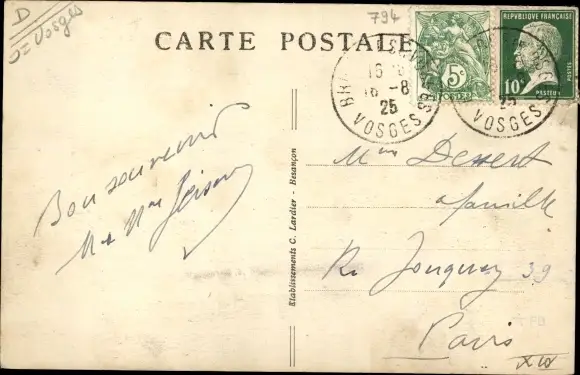 D
= Vosges
794
CARTE POSTALE
REPUBLIQUE FRANÇAISE
5c
10c
POSTES
PASTEUR
16-8
25
VOSGES
25
VOSGES
Bon souvenir
M et Mme
Mme Dessert
et famille
39
Paris
XIX
Etablissements C. Lardier - Besançon